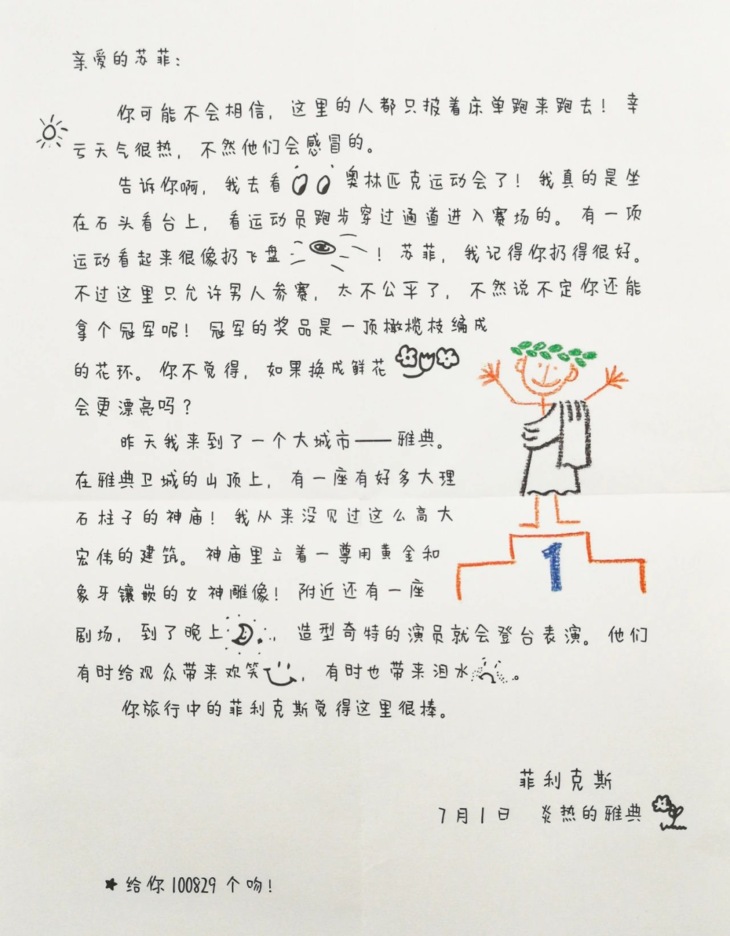 亲爱的苏菲：
你可能不会相信，这里的人都只披着床单跑来跑去！幸
亏天气很热，不然他们会感冒的。
告诉你啊，我去看 奥林匹克运动会了！我真的是坐
在石头看台上，看运动员跑步穿过通道进入赛场的。有一项
运动看起来很像扔飞盘 ！苏菲，我记得你扔得很好。
不过这里只允许男人参赛，太不公平了，不然说不定你还能
拿个冠军呢！冠军的奖品是一顶橄榄枝编成
的花环。你不觉得，如果换成鲜花
会更漂亮吗？
昨天我来到了一个大城市——雅典。
在雅典卫城的山顶上，有一座有好多大理
石柱子的神庙！我从来没见过这么高大
宏伟的建筑。神庙里立着一尊用黄金和
象牙镶嵌的女神雕像！附近还有一座
剧场，到了晚上 ，造型奇特的演员就会登台表演。他们
有时给观众带来欢笑 ，有时也带来泪水 。
你旅行中的菲利克斯觉得这里很棒。
1
菲利克斯
7月1日 炎热的雅典
★给你100829个吻！